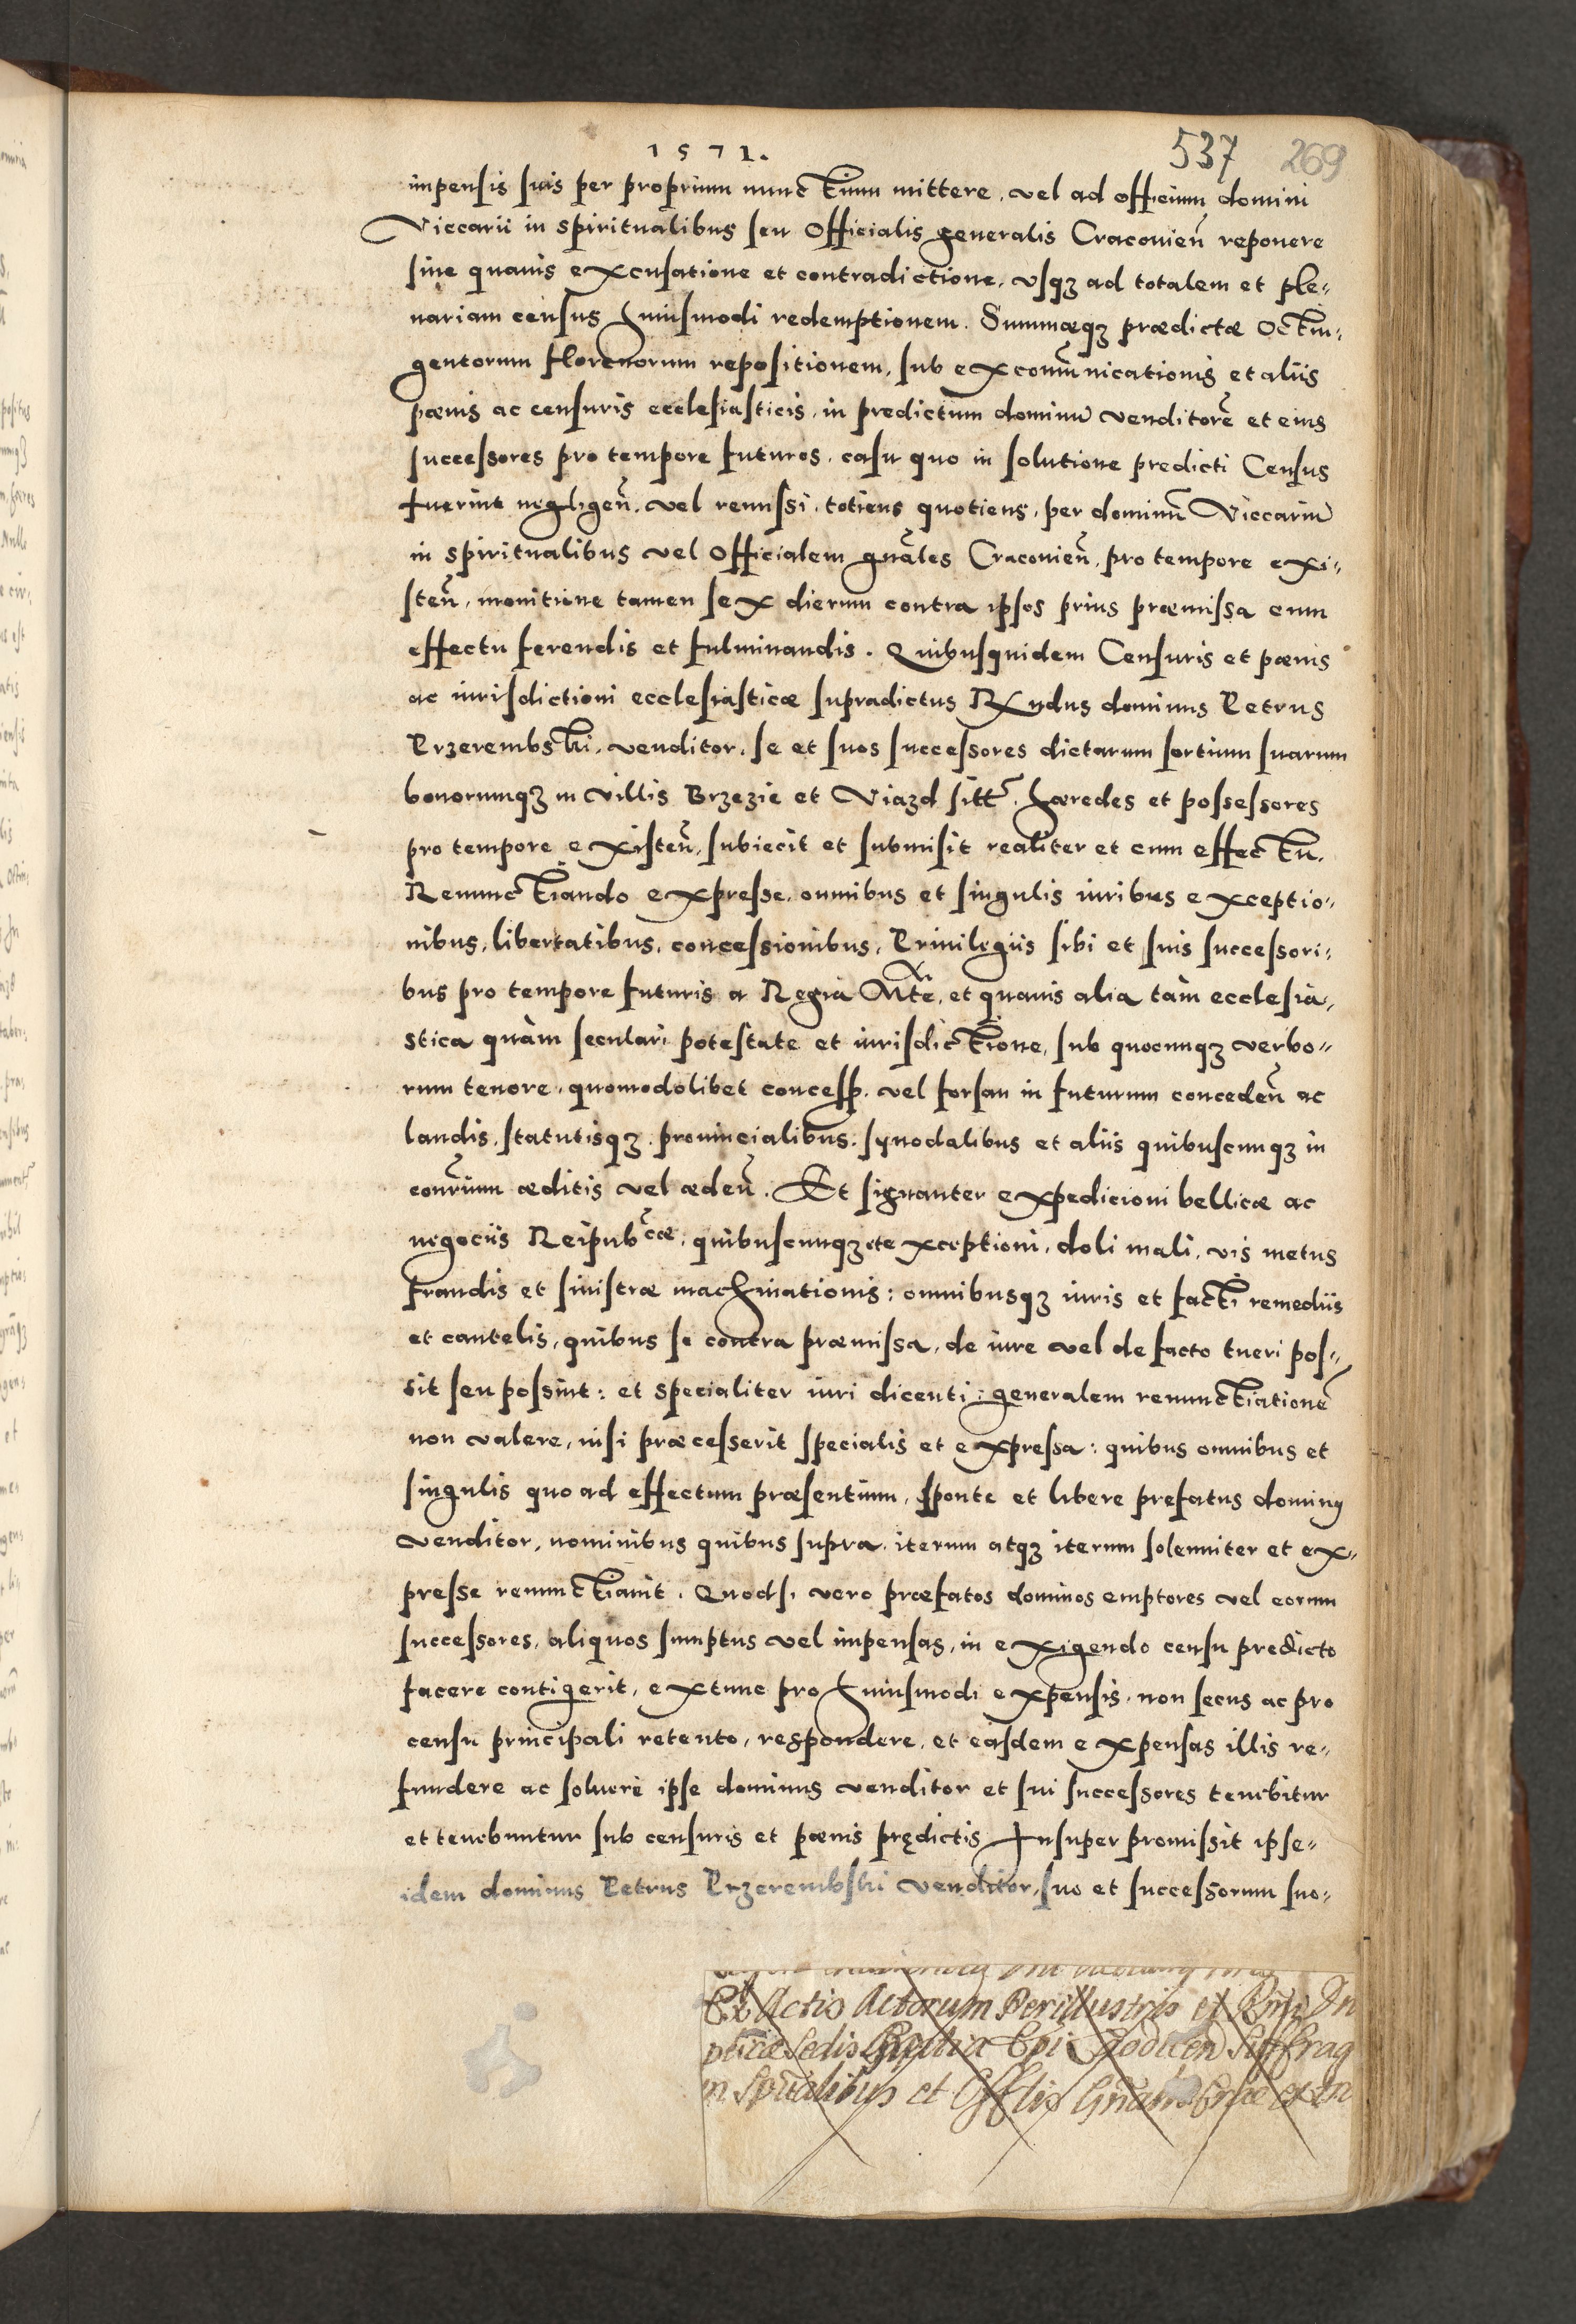 1571.
537 269
impensis suis per proprium nunctium mittere, vel ad officium domini
Viccarii in spiritualibus seu Officialis generalis Craconień reponere
sine quauis excusatione et contradictione, vsqȝ ad totalem et ple„
nariam census huiusmodi redemptionem. Summæqȝ prædictæ Octin„
gentorum florenorum repositionem, sub excom̃unicationis et aliis
pœnis ac censuris ecclesiasticis, in predictum dominũ venditorẽ et eius
successores pro tempore futuros, casu quo in solutione predicti Census
fuerint negligeñ. vel remissi, totiens quotiens, per dominũ Viccariũ
in spiritualibus vel Officialem gñales Craconieñ, pro tempore exi„
steñ, monitione tamen sex dierum contra ipsos prius præmissa cum
effectu ferendis et fulminandis. Quibusquidem Censuris et pœnis
ac iurisdictioni ecclesiasticæ supradictus Rṽdus dominus Petrus
Przerembski, venditor, se et suos successores dictarum sortium suarum
bonorumqȝ in villis Brzezie et Viazd sitt̃. hæredes et possessores
pro tempore existeñ, subiecit et submisit realiter et cum effectu.
Renunctiando expresse, omnibus et singulis iuribus exceptio„
nibus, libertatibus, concessionibus, Priuilegiis sibi et suis successori„
bus pro tempore futuris a Regia Mte, et quauis alia tàm ecclesia„
stica quàm seculari potestate et iurisdictione, sub quocunqȝ verbo„
rum tenore, quomodolibet concess. vel forsan in futurum concedeñ ac
laudis, statutisqȝ prouincialibus, synodalibus et aliis quibuscunqȝ in
conrium æditis vel ædeñ. Et signanter expedicioni bellicæ ac
negociis Reipubcæ, quibuscunqȝ et exceptioni, doli mali, vis metus
fraudis et sinistræ machinationis: omnibusqȝ iuris et facti remediis
et cautelis, quibus se contra præmissa, de iure vel de facto tueri pos„
sit seu possint: et specialiter iuri dicenti: generalem renunctiationẽ
non valere, nisi præcesserit specialis et expressa: quibus omnibus et
singulis quo ad effectum præsentium, sponte et libere prefatus dominus
venditor, nominibus quibus supra, iterum atqȝ iterum solenniter et ex„
presse renunctiauit. Quodsi vero præfatos dominos emptores vel eorum
successores, aliquos sumptus vel impensas, in exigendo censu predicto
facere contigerit, extunc pro huiusmodi expensis, non secus ac pro
censu principali retento, respondere, et easdem expensas illis re„
fundere ac soluere ipse dominus venditor et sui successores tenebitur
et tenebuntur sub censuris et pœnis prędictis Insuper promissit ipse„
idem dominus Petrus Przerembski venditor, suo et successorum suo„
Ex Actis Actorum Perillustris et Rñdi Dn
Sedis Epi Suffrag
in Spũalibus et